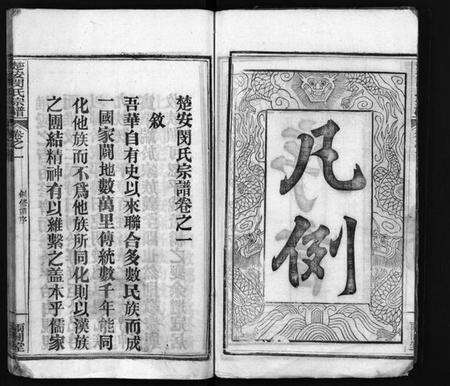 凡例
楚安閔氏宗譜卷之一
敘
吾華自有史以來聯合多數民族而成
一國家闢地數萬里傳統數千年能同
化他族而不為他族所同化則以漢族
之團結精神有以維繫之蓋本乎儒家
楚安閔氏宗譜
卷之一